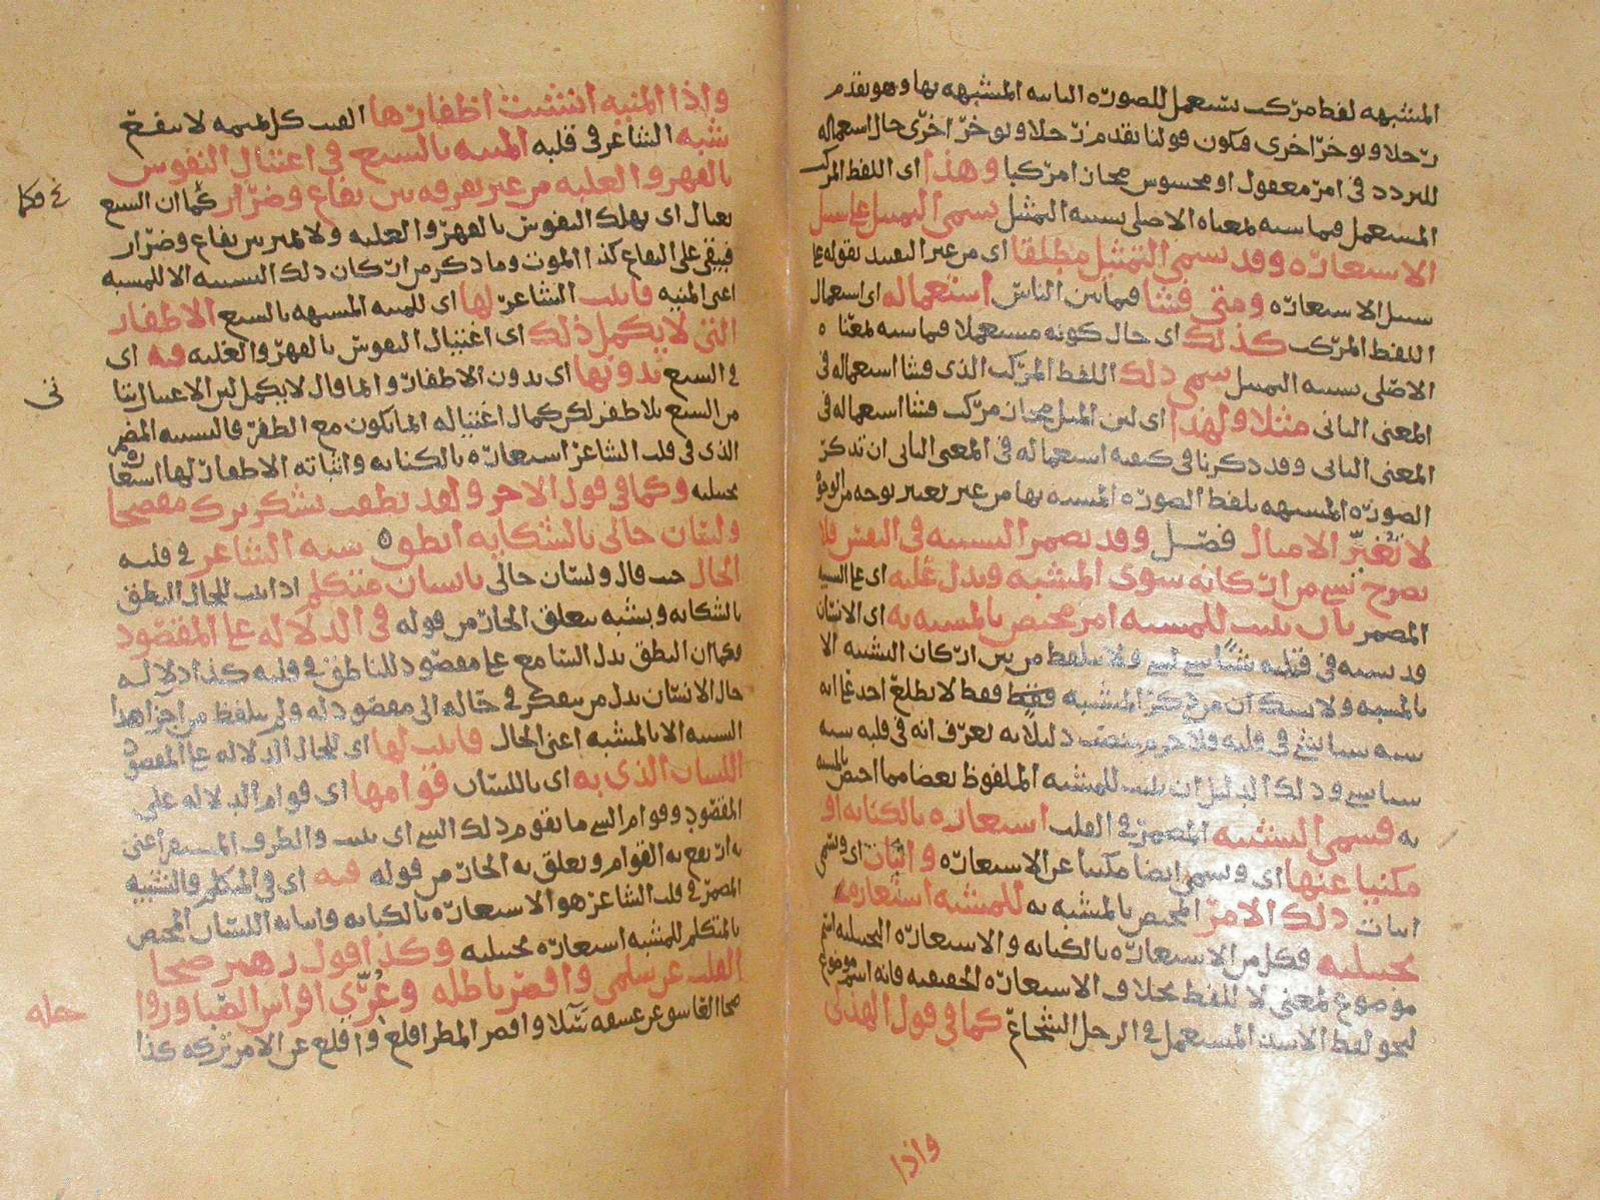 المشبهه لفظ مركب يستعمل للصورة الثانية المشبهه بها وهو تقدم
رجلا وتوخر اخرى فيكون قولنا تقدم رجلا وتوخر اخرى حال استعماله
للتردد في امر معقول او محسوس مجاز امركبا وهذا اى اللفظ المركب
المستعمل فيما شبه بمعناه الاصلى تشبيه التمثيل يسمى التمثيل على سبيل
الاستعارة وقد يسمى التمثيل مطلقا اى من غير التقييد بقوله على
سبيل الاستعارة ومتى فشا فيما بين الناس استعماله اى استعمال
اللفظ المركب كذلك اى حال كونه مستعملا فيما شبه بمعناه
الاصلى تشبيه التمثيل سمى ذلك اللفظ المركب الذى فشا استعماله في
المعنى الثانى مثلا ولهذا اى لان المثل مجاز مركب فشا استعماله في
المعنى الثانى وقد ذكرنا في كيفية استعماله في المعنى الثانى ان تذكر
الصورة المشبهه بلفظ الصورة المشبه بها من غير تغيير بوجه من الوجوه
لا تغير الامثال فصل وقد يضمر التشبيه في النفس فلا
يصرح بشى من اركانه سوى المشبه ويدل عليه اى على التشبيه
المضمر بان يثبت للمشبه امر مختص بالمشبه به اى الانسان
قد يشبه في قلبه شيا بشى ولا يتلفظ من بين اركان التشبيه الا
بالمشبه ولا شك ان من ذكر المشبه فقط لا يطلع احد على انه
شبه شيا بشى في قلبه فلا جرم ينصب دليلا به يعرف انه في قلبه شبه
شيا بشى وذلك الدليل ان يثبت للمشبه الملفوظ بعضا مما اختص بالمشبه
به فيسمى التشبيه المضمر في القلب استعارة بالكناية او
مكنيا عنها اى ويسمى ايضا مكنيا عن الاستعارة واثبات اى ويسمى
اثبات ذلك الامر المختص بالمشبه به للمشبه استعارة
تخييلية فكل من الاستعارة بالكناية والاستعارة التخييلية اسم
موضوع لمعنى لا للفظ بخلاف الاستعارة الحقيقية فانه اسم موضوع
لنحو لفظ الاسد المستعمل في الرجل الشجاع كما في قول الهذلى
واذا
واذا المنيه انشبت اظفارها الفيت كل تميمه لا تنفع
شبه الشاعر في قلبه المنيه بالسبع في اغتيال النفوس
بالقهر والغلبه من غير تفرقه بين نفاع وضرار كما ان السبع
يغتال اى يهلك النفوس بالقهر والغلبه ولا يميز بين نفاع وضرار
فيبقى على النفاع كذا الموت وما ذكر من اركان ذلك التشبيه الا المشبه
اعنى المنيه فاثبت الشاعر لها اى للمنيه المشبهه بالسبع الاظفار
التى لا يكمل ذلك اى اغتيال النفوس بالقهر والغلبه فيه اى
في السبع بدونها اى بدون الاظفار وانما قال لا يكمل لان الاغتيال ياتى
من السبع بلا ظفر لكن كمال اغتياله انما يكون مع الظفر فالتشبيه المضمر
الذى في قلب الشاعر استعارة بالكناية واثباته الاظفار لها استعارة
تخييلية وكما في قول الاخر ولئن نطقت بشكر برك مفصحا
ولسان حالى بالشكاية انطق شبه الشاعر في قلبه
الحال حيث قال ولسان حالى بانسان متكلم اذ اثبت للحال النطق
بالشكاية ويشبه يتعلق الجار من قوله في الدلاله على المقصود
فكما ان النطق يدل السامع على مقصود للناطق في قلبه كذا دلاله
حال الانسان يدل من يتفكر في حاله الى مقصود له ولم يتلفظ من اجزا هذا
التشبيه الا بالمشبه اعنى الحال فاثبت لها اى للحال الدلاله على المقصود
اللسان الذى به اى باللسان قوامها اى قوام الدلاله على
المقصود وقوام الشى ما يقوم ذلك الشى اى يثبت والظرف المستقر اعنى
به ارتفع به القوام ويعلق به الجار من قوله فيه اى في المتكلم فالتشبيه
المضمر في قلب الشاعر هو الاستعارة بالكناية واثباته اللسان المختص
بالمتكلم للمشبه استعارة تخييلية وكذا قول زهير صحا
القلب عن سلمى واقصر باطله وعرى افراس الصبا ورواحله
صحا القاسى عن عشقه سلا واقصر المطر اقلع واقلع عن الامر تركه كذا